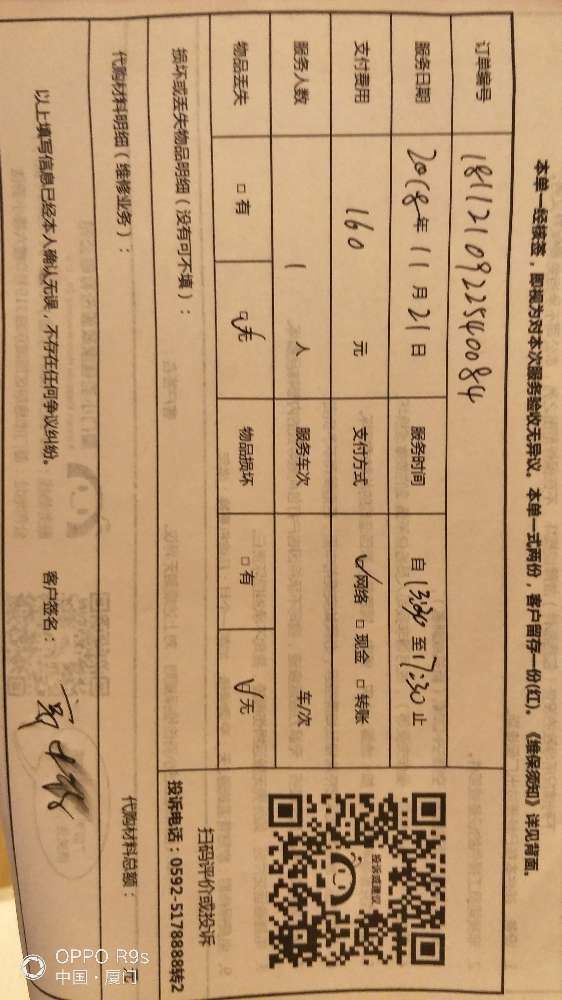 本单一经核签，即视为对本次服务验收无异议。本单一式两份，客户留存一份(红)。《维保须知》详见背面。
订单编号 1811210922540084
服务日期 2018年 11 月 21 日 服务时间 自 13:30 至 17:30 止
支付费用 160 元 支付方式 ☑网络 □现金 □转账
服务人数 1 人 服务车次 车/次
物品丢失 □有 ☑无 物品损坏 □有 ☑无
损坏或丢失物品明细（没有可不填）：
代购材料明细（维修业务）：
代购材料总额： 元
以上填写信息已经本人确认无误，不存在任何争议纠纷。 客户签名：
投诉或建议
扫码评价或投诉
投诉电话：0592-5178888转2
OPPO R9s
中国·厦门